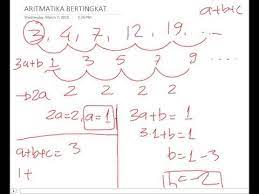 ARITMATIKA BERTINGKAT
a+b+c
3, 4, 7, 12, 19, ...
3a+b 1 3 5 7 9 ...
→2a 2 2 2 2
2a=2, a=1
3a+b=1
3.1+b=1
b=1-3
b=-2
a+b+c=3
1+